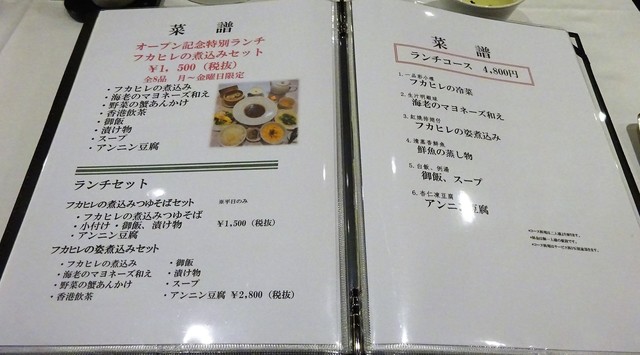 菜譜
オープン記念特別ランチ
フカヒレの煮込みセット
¥1,500（税抜）
全8品 月～金曜日限定
・フカヒレの煮込み
・海老のマヨネーズ和え
・野菜の蟹あんかけ
・香港飲茶
・御飯
・漬け物
・スープ
・アンニン豆腐
ランチセット
フカヒレの煮込みつゆそばセット ※平日のみ
・フカヒレの煮込みつゆそば
・小付け・御飯、漬け物 ¥1,500（税抜）
・アンニン豆腐
フカヒレの姿煮込みセット
・フカヒレの煮込み ・御飯
・海老のマヨネーズ和え ・漬け物
・野菜の蟹あんかけ ・スープ
・香港飲茶 ・アンニン豆腐 ¥2,800（税抜）
菜譜
ランチコース 4,800円
1.
フカヒレの冷菜
2.
海老のマヨネーズ和え
3.
フカヒレの姿煮込み
4.
鮮魚の蒸し物
5. 白飯、例湯
御飯、スープ
6. 杏仁凍豆腐
アンニン豆腐